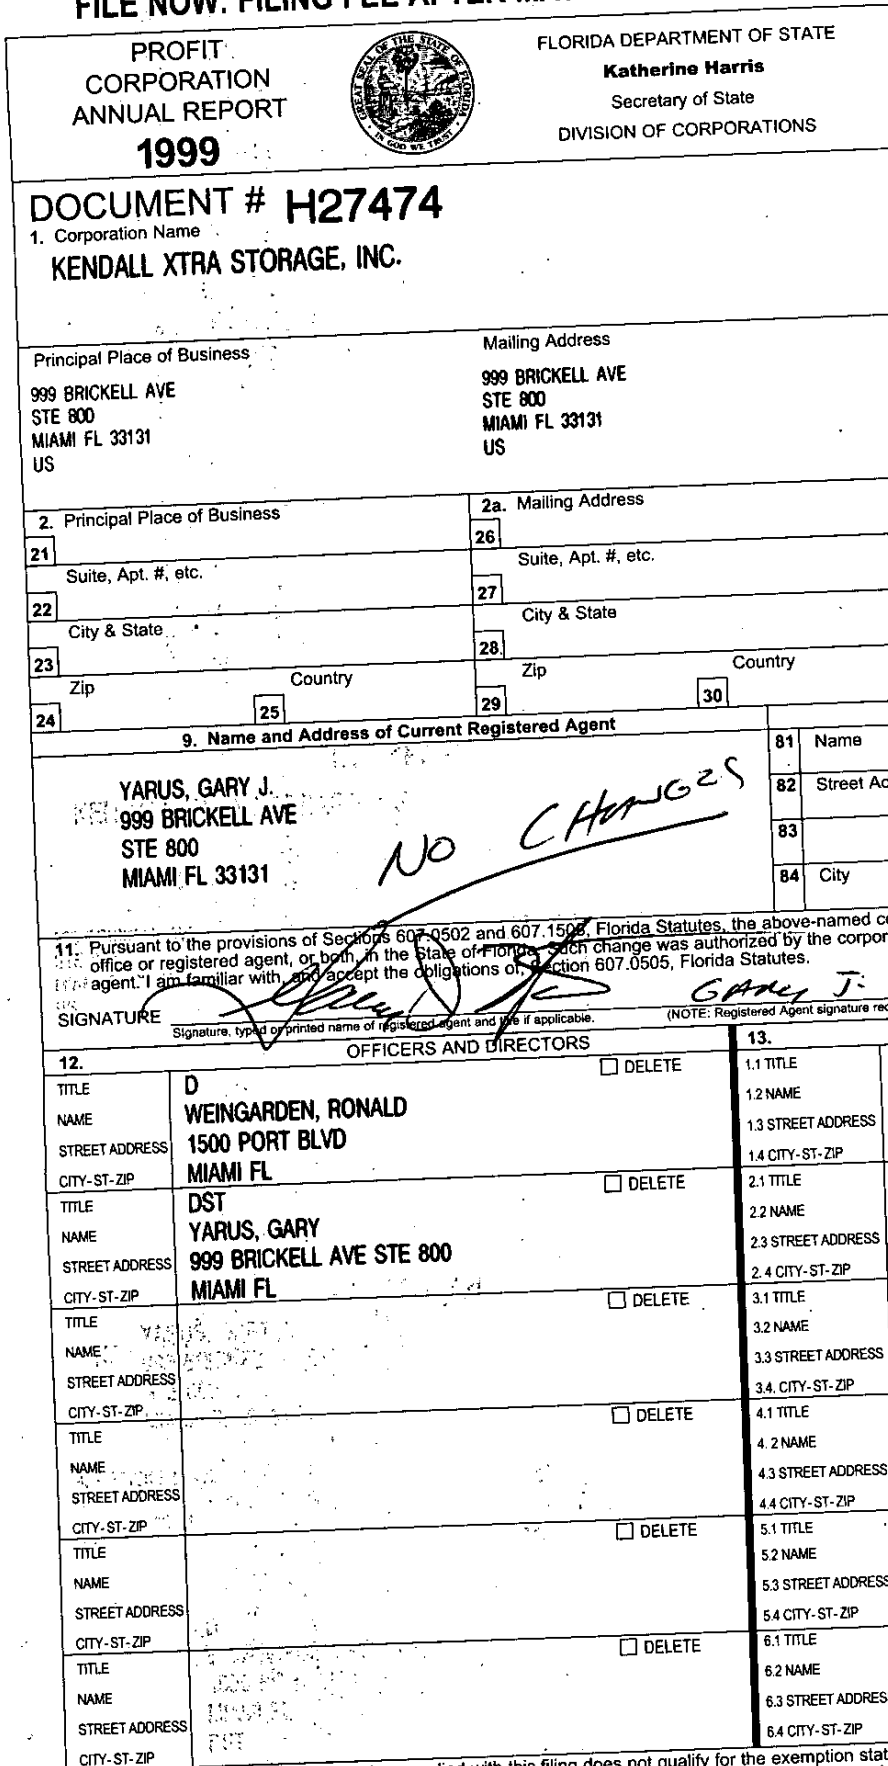 FILE NOW: FILING FEE AFTER
PROFIT
CORPORATION
ANNUAL REPORT
1999
GREAT SEAL OF THE STATE OF FLORIDA
IN GOD WE TRUST
FLORIDA DEPARTMENT OF STATE
Katherine Harris
Secretary of State
DIVISION OF CORPORATIONS
DOCUMENT # H27474
1. Corporation Name
KENDALL XTRA STORAGE, INC.
Principal Place of Business
Mailing Address
999 BRICKELL AVE
STE 800
MIAMI FL 33131
US
999 BRICKELL AVE
STE 800
MIAMI FL 33131
US
2. Principal Place of Business
2a. Mailing Address
21
26
Suite, Apt. #, etc.
Suite, Apt. #, etc.
22
27
City & State
City & State
23
28
Zip
Country
Zip
Country
24
25
29
30
9. Name and Address of Current Registered Agent
81 Name
82 Street Ad
83
84 City
YARUS, GARY J.
999 BRICKELL AVE
STE 800
MIAMI FL 33131
NO CHANGES
11. Pursuant to the provisions of Sections 607.0502 and 607.1508, Florida Statutes, the above-named co
office or registered agent, or both, in the State of Florida. Such change was authorized by the corpor
agent. I am familiar with, and accept the obligations of, Section 607.0505, Florida Statutes.
SIGNATURE
GARY J.
Signature, typed or printed name of registered agent and title if applicable.
(NOTE: Registered Agent signature rec
12. OFFICERS AND DIRECTORS
13.
TITLE D DELETE
NAME WEINGARDEN, RONALD
STREET ADDRESS 1500 PORT BLVD
CITY-ST-ZIP MIAMI FL
1.1 TITLE
1.2 NAME
1.3 STREET ADDRESS
1.4 CITY-ST-ZIP
TITLE DST DELETE
NAME YARUS, GARY
STREET ADDRESS 999 BRICKELL AVE STE 800
CITY-ST-ZIP MIAMI FL
2.1 TITLE
2.2 NAME
2.3 STREET ADDRESS
2.4 CITY-ST-ZIP
TITLE DELETE
NAME
STREET ADDRESS
CITY-ST-ZIP
3.1 TITLE
3.2 NAME
3.3 STREET ADDRESS
3.4. CITY-ST-ZIP
TITLE DELETE
NAME
STREET ADDRESS
CITY-ST-ZIP
4.1 TITLE
4.2 NAME
4.3 STREET ADDRESS
4.4 CITY-ST-ZIP
TITLE DELETE
NAME
STREET ADDRESS
CITY-ST-ZIP
5.1 TITLE
5.2 NAME
5.3 STREET ADDRESS
5.4 CITY-ST-ZIP
TITLE DELETE
NAME
STREET ADDRESS
CITY-ST-ZIP
6.1 TITLE
6.2 NAME
6.3 STREET ADDRES
6.4 CITY-ST-ZIP
with this filing does not qualify for the exemption stat